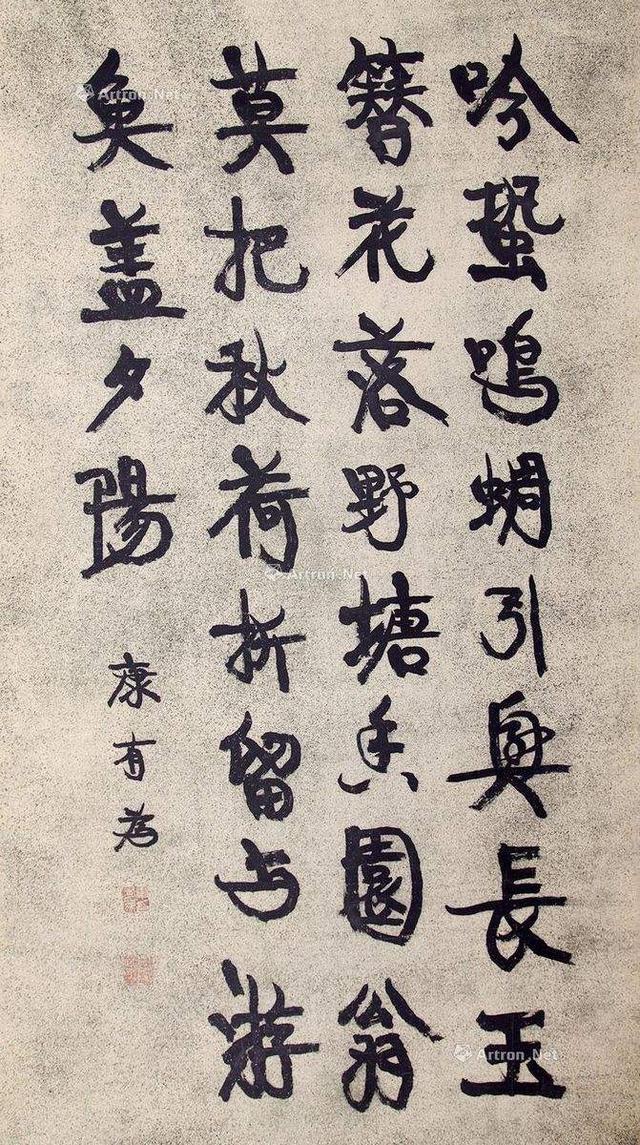 吟蛩鳴蜩引興長玉
簪花落野塘香園翁
莫把秋荷折留与游
魚盖夕陽
康有為
Artron.Net
Artron.Net
Artron.Net